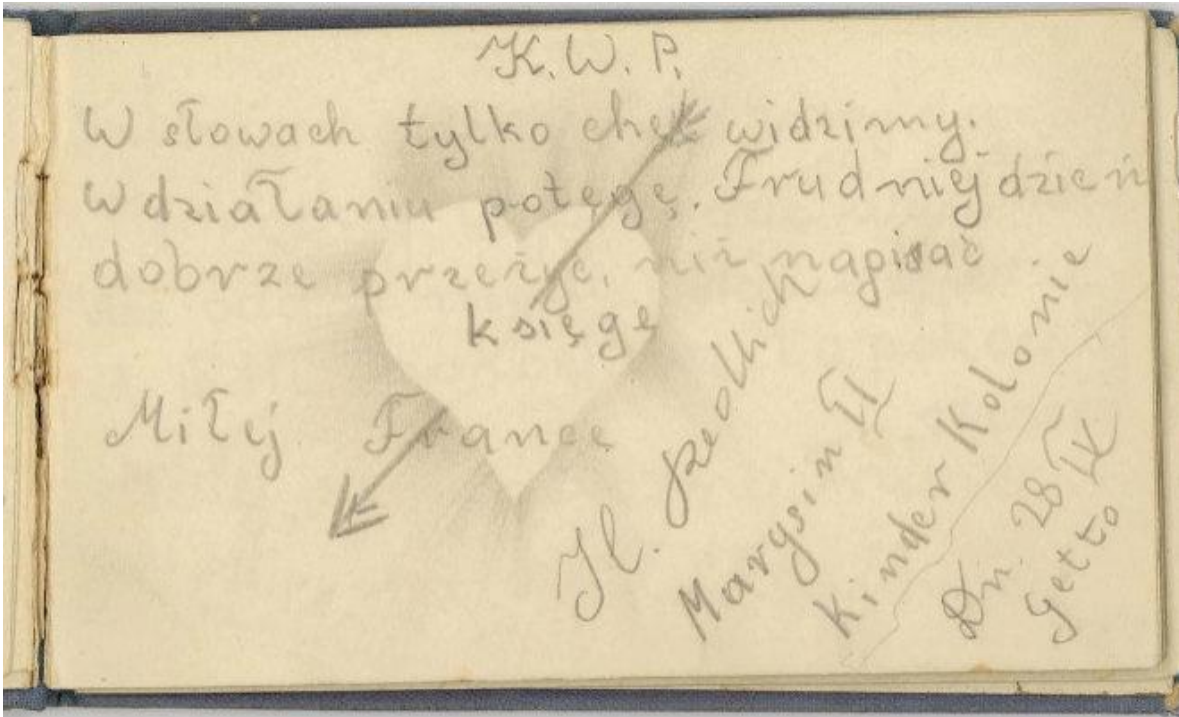 K. W. P.
W słowach tylko chęć widzimy.
W działaniu potęgę. Trudniej dzień
dobrze przeżyć, niż napisać
księgę
Miłej France
H.
Marysin II
Kinder Kolonie
Dn. 28 IX
Getto